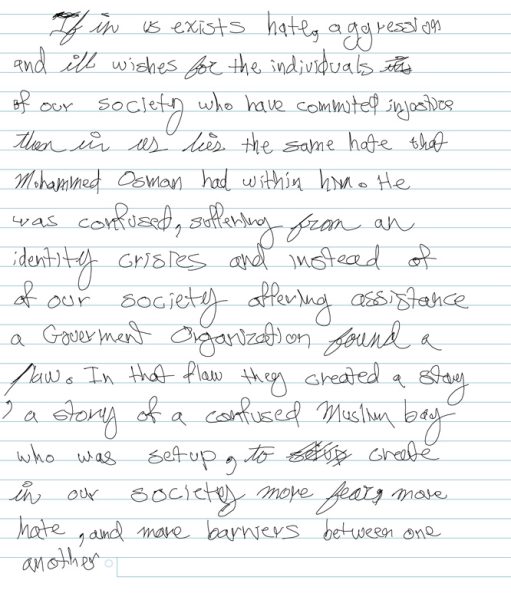 If in us exists hate, aggression
and ill wishes for the individuals
of our society who have commited injustice
then in us lies the same hate that
Mohammed Osman had within him. He
was confused, suffering from an
identity crisies and instead of
of our society offering assistance
a Goverment Organization found a
flaw. In that flaw they created a story
, a story of a confused Muslim boy
who was setup, to create
in our society more fear, more
hate, and more barriers between one
another.